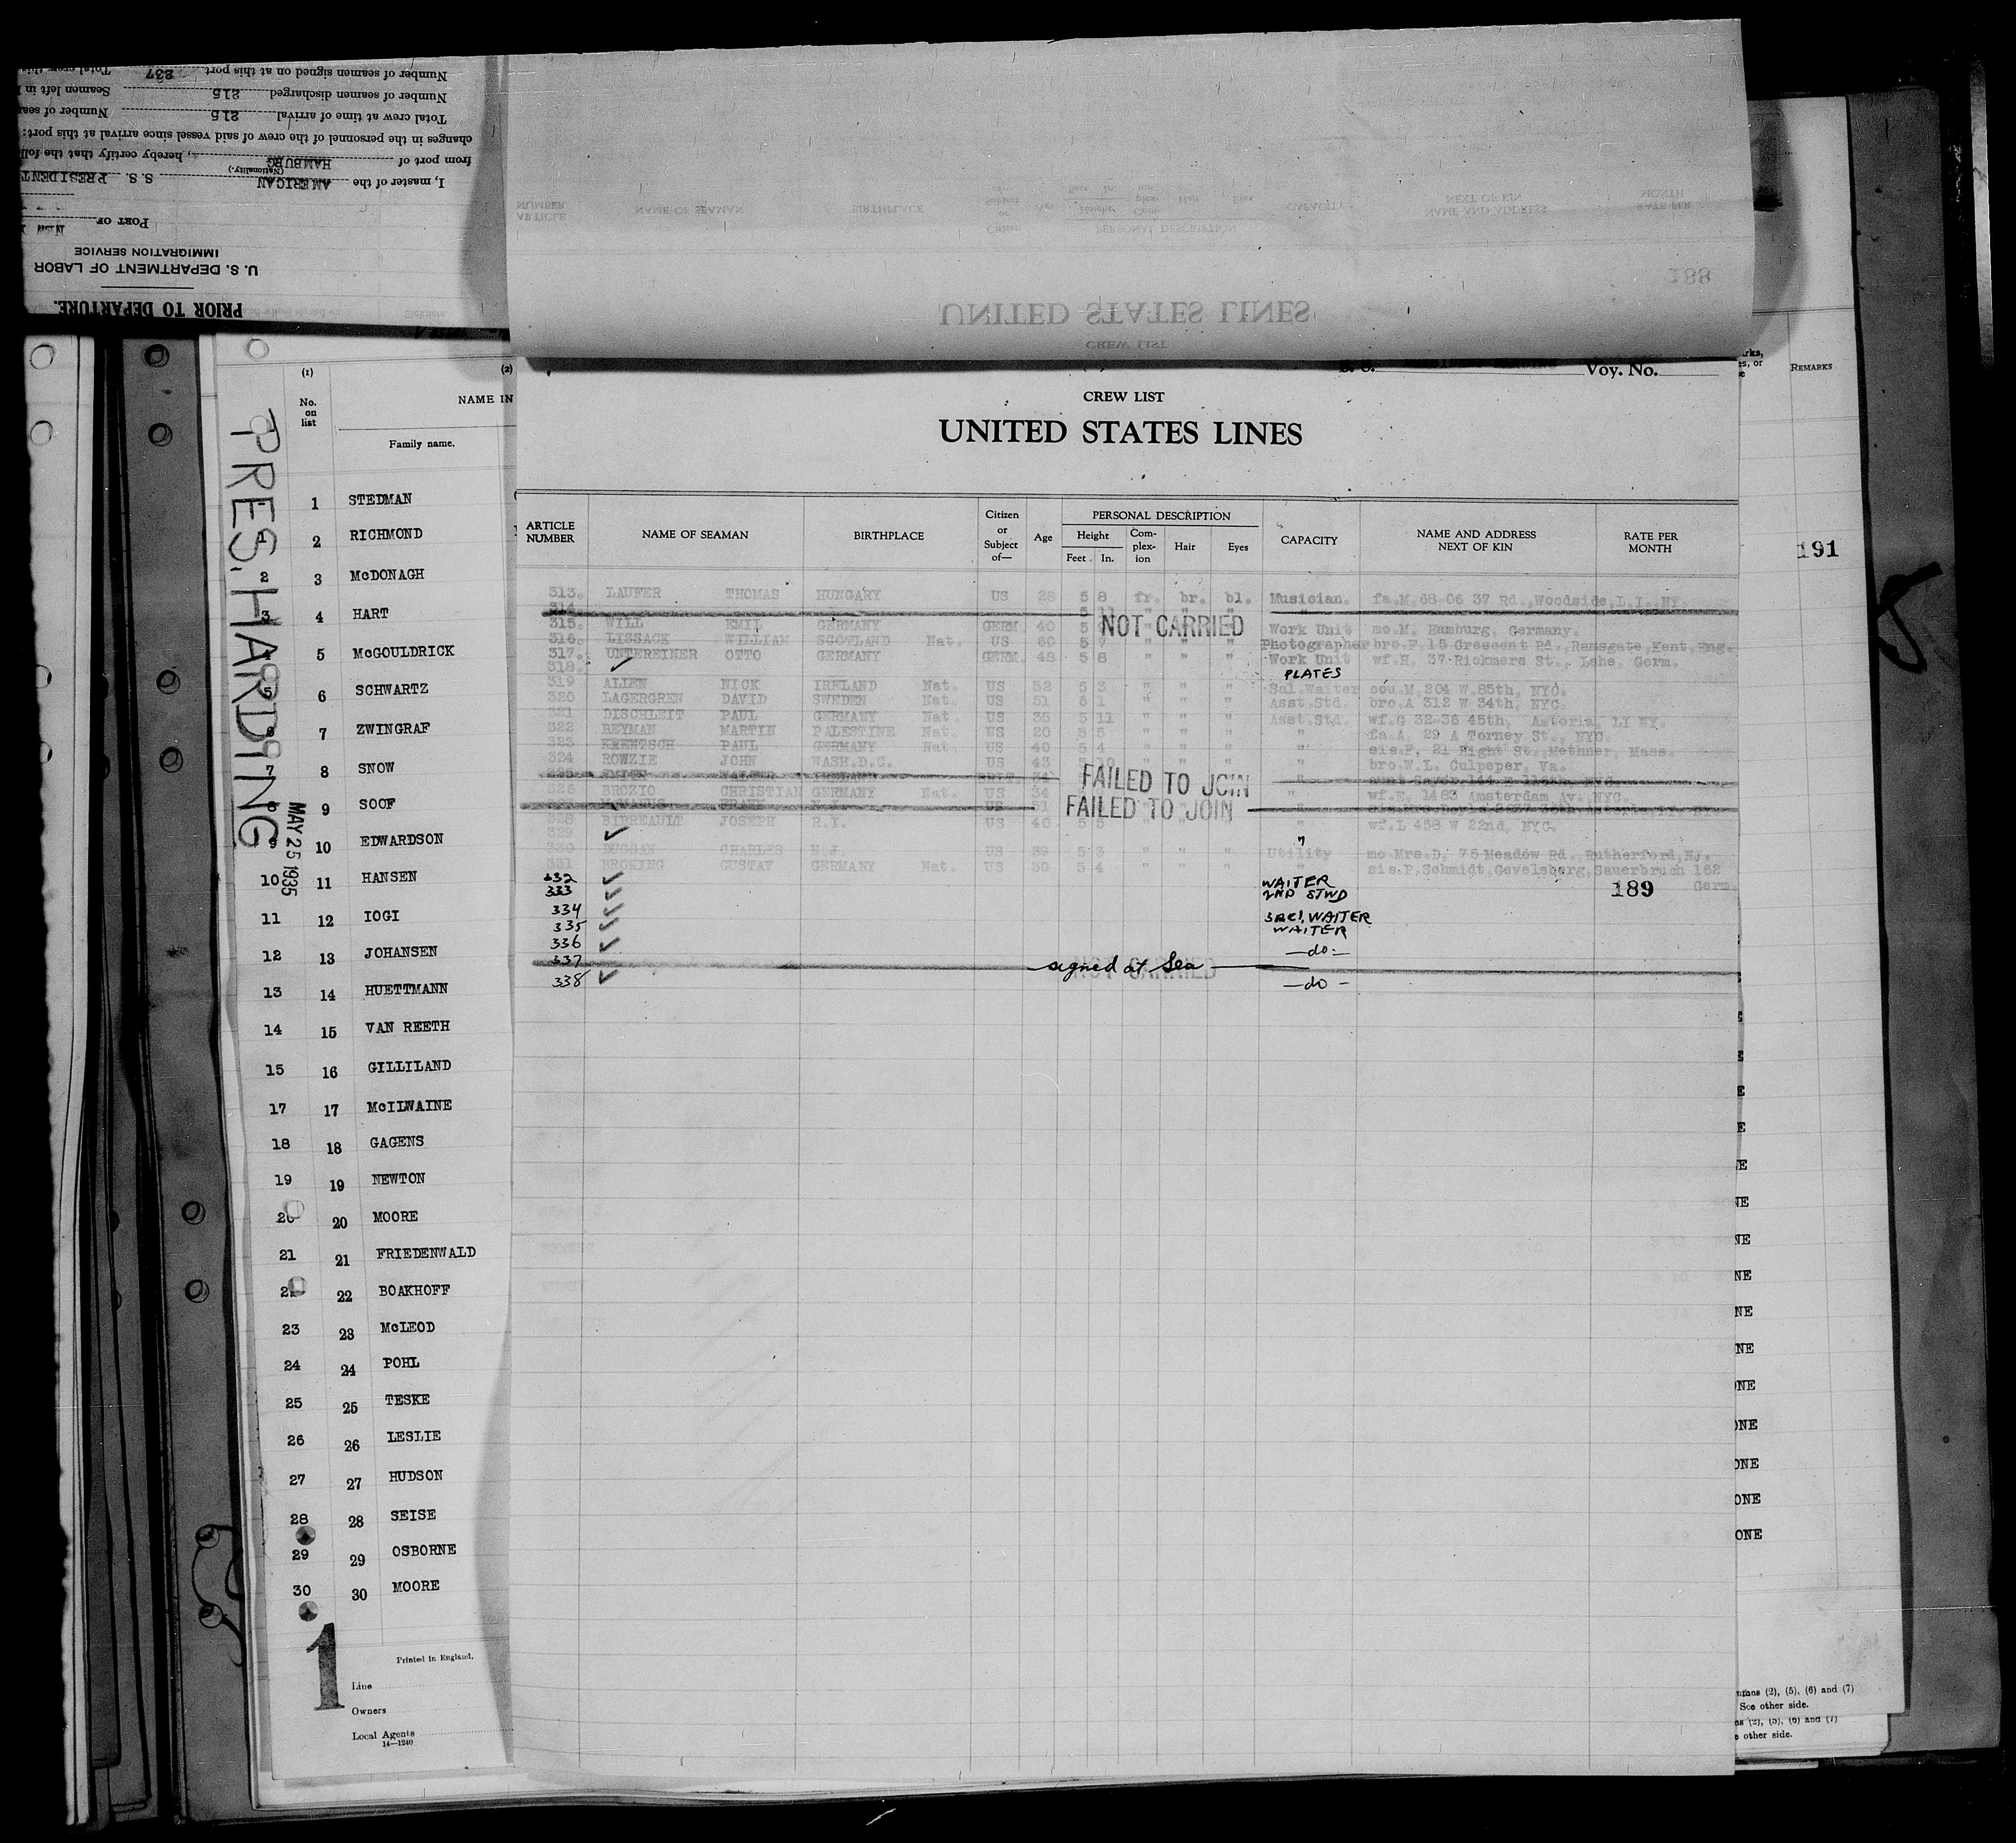 PRIOR TO DEPARTURE.
U. S. DEPARTMENT OF LABOR
IMMIGRATION SERVICE
PORT OF New
I, master of the AMERICAN S. S. PRESIDENT
(Nationality.)
from port of HAMBURG, hereby certify that the
changes in the personnel of the crew of said vessel since arrival at this port:
Total crew at time of arrival 215 Number of
Number of seamen discharged 215 Seamen left in
Number of seamen signed on at this port 237 Total crew
ARTICLE NUMBER NAME OF SEAMAN BIRTHPLACE AGE CAPACITY NAME AND ADDRESS NEXT OF KIN RATE PER MONTH
PERSONAL DESCRIPTION
188
UNITED STATES LINES
CREW LIST
PRES. HARDING
MAY 25 1935
(1) (2)
No. on list
NAME IN
Family name.
1 STEDMAN
2 RICHMOND
2 3 McDONAGH
3 4 HART
5 McGOULDRICK
5 6 SCHWARTZ
6 7 ZWINGRAF
7 8 SNOW
8 9 SOOF
9 10 EDWARDSON
10 11 HANSEN
11 12 IOGI
12 13 JOHANSEN
13 14 HUETTMANN
14 15 VAN REETH
15 16 GILLILAND
17 17 McILWAINE
18 18 GAGENS
19 19 NEWTON
20 20 MOORE
21 21 FRIEDENWALD
22 BOAKHOFF
23 23 McLEOD
24 24 POHL
25 25 TESKE
26 26 LESLIE
27 27 HUDSON
28 28 SEISE
29 29 OSBORNE
30 30 MOORE
1
Printed in England.
Line
Owners
Local Agents
14—1240
Voy. No.
CREW LIST
UNITED STATES LINES
ARTICLE NUMBER NAME OF SEAMAN BIRTHPLACE Citizen or Subject of— Age PERSONAL DESCRIPTION Height Feet In. Complexion Hair Eyes CAPACITY NAME AND ADDRESS NEXT OF KIN RATE PER MONTH
313. LAUFER THOMAS HUNGARY US 28 5 8 fr. br. bl. Musician. fa.M,68-06 37 Rd., Woodside, L.I. NY.
314. 5 11 " " " NOT CARRIED
315. WILL EMIL GERMANY GERM. 40 5 Work Unit mo.M. Hamburg, Germany.
316. LISSACK WILLIAM SCOTLAND Nat. US 60 5 7 " " " Photographer bro.F, 15 Crescent Rd., Ramsgate, Kent, Eng.
317. UNTEREINER OTTO GERMANY GERM. 48 5 8 " " " Work Unit wf.H, 37 Rickmers St., Lehe, Germ.
318. ✓ PLATES
319 ALLEN NICK IRELAND Nat. US 52 5 3 " " " Sal.Waiter cou.M,204 W.85th, NYC.
320 LAGERGREN DAVID SWEDEN Nat. US 51 6 1 " " " Asst.Std. bro.A 312 W 34th, NYC.
321 DISCHLEIT PAUL GERMANY Nat. US 35 5 11 " " " Asst.Std. wf.G 32-36 45th, Astoria, LI NY.
322 HEYMAN MARTIN PALESTINE Nat. US 20 5 5 " " " " fa.A, 29 A Torney St., NYC.
323 KRENTSCH PAUL GERMANY Nat. US 40 5 4 " " " " sis.F, 21 Hight St., Methner, Mass.
324 ROWZIE JOHN WASH.D.C. US 43 5 10 " bro.W.L. Culpeper, Va.
325 FAILED TO JOIN
326 BROZIO CHRISTIAN GERMANY Nat. US 34 " wf.E, 1483 Amsterdam Av. NYC.
FAILED TO JOIN
328 BIBREAULT JOSEPH R.I. US 40 5 5 " " " " wf.L 458 W 22nd, NYC.
329 ✓ "
330 DUGGAN CHARLES N.J. US 39 5 3 " " " Utility mo Mrs.D, 75 Meadow Rd., Rutherford, NJ.
331 BROKING GUSTAV GERMANY Nat. US 50 5 4 " " " " sis.P, Schmidt, Gevelsberg, Sauerbruch 162 Germ.
332 ✓ WAITER 189
333 ✓ 2ND STWD
334 ✓ WAITER
335 ✓ WAITER
336 ✓ —do—
337 signed at Sea NOT CARRIED
338 ✓ —do—
REMARKS
191
NE
NE
NE
NE
NE
ONE
ONE
ONE
ONE
ONE
(2), (5), (6) and (7)
See other side.
(2), (5), (6) and (7)
other side.